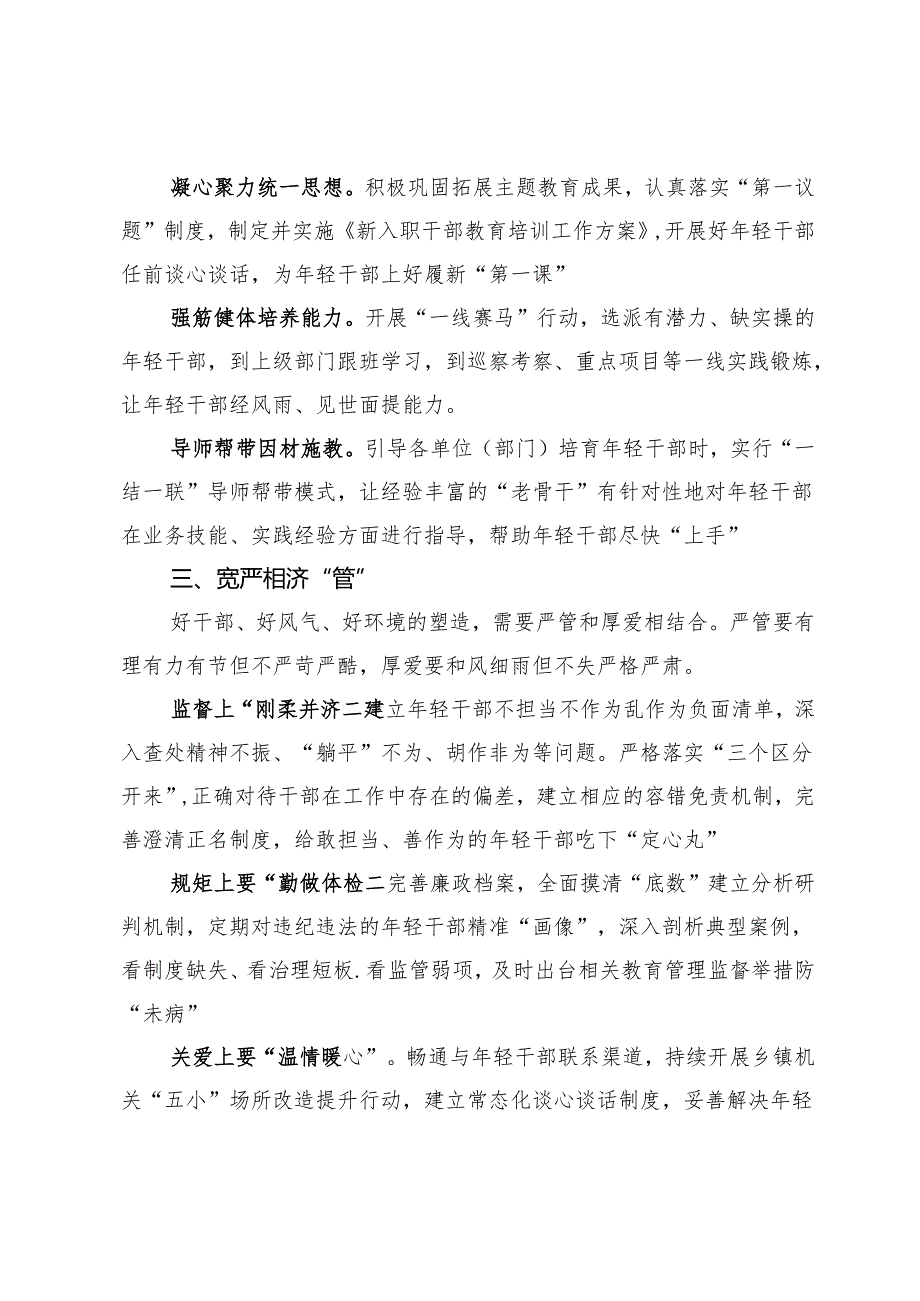 凝心聚力统一思想。积极巩固拓展主题教育成果，认真落实“第一议
题”制度，制定并实施《新入职干部教育培训工作方案》,开展好年轻干部
任前谈心谈话，为年轻干部上好履新“第一课”
强筋健体培养能力。开展“一线赛马”行动，选派有潜力、缺实操的
年轻干部，到上级部门跟班学习，到巡察考察、重点项目等一线实践锻炼，
让年轻干部经风雨、见世面提能力。
导师帮带因材施教。引导各单位（部门）培育年轻干部时，实行“一
结一联”导师帮带模式，让经验丰富的“老骨干”有针对性地对年轻干部
在业务技能、实践经验方面进行指导，帮助年轻干部尽快“上手”
三、宽严相济“管”
好干部、好风气、好环境的塑造，需要严管和厚爱相结合。严管要有
理有力有节但不严苛严酷，厚爱要和风细雨但不失严格严肃。
监督上“刚柔并济二建立年轻干部不担当不作为乱作为负面清单，深
入查处精神不振、“躺平”不为、胡作非为等问题。严格落实“三个区分
开来”,正确对待干部在工作中存在的偏差，建立相应的容错免责机制，完
善澄清正名制度，给敢担当、善作为的年轻干部吃下“定心丸”
规矩上要“勤做体检二完善廉政档案，全面摸清“底数”建立分析研
判机制，定期对违纪违法的年轻干部精准“画像”，深入剖析典型案例，
看制度缺失、看治理短板.看监管弱项，及时出台相关教育管理监督举措防
“未病”
关爱上要“温情暖心”。畅通与年轻干部联系渠道，持续开展乡镇机
关“五小”场所改造提升行动，建立常态化谈心谈话制度，妥善解决年轻